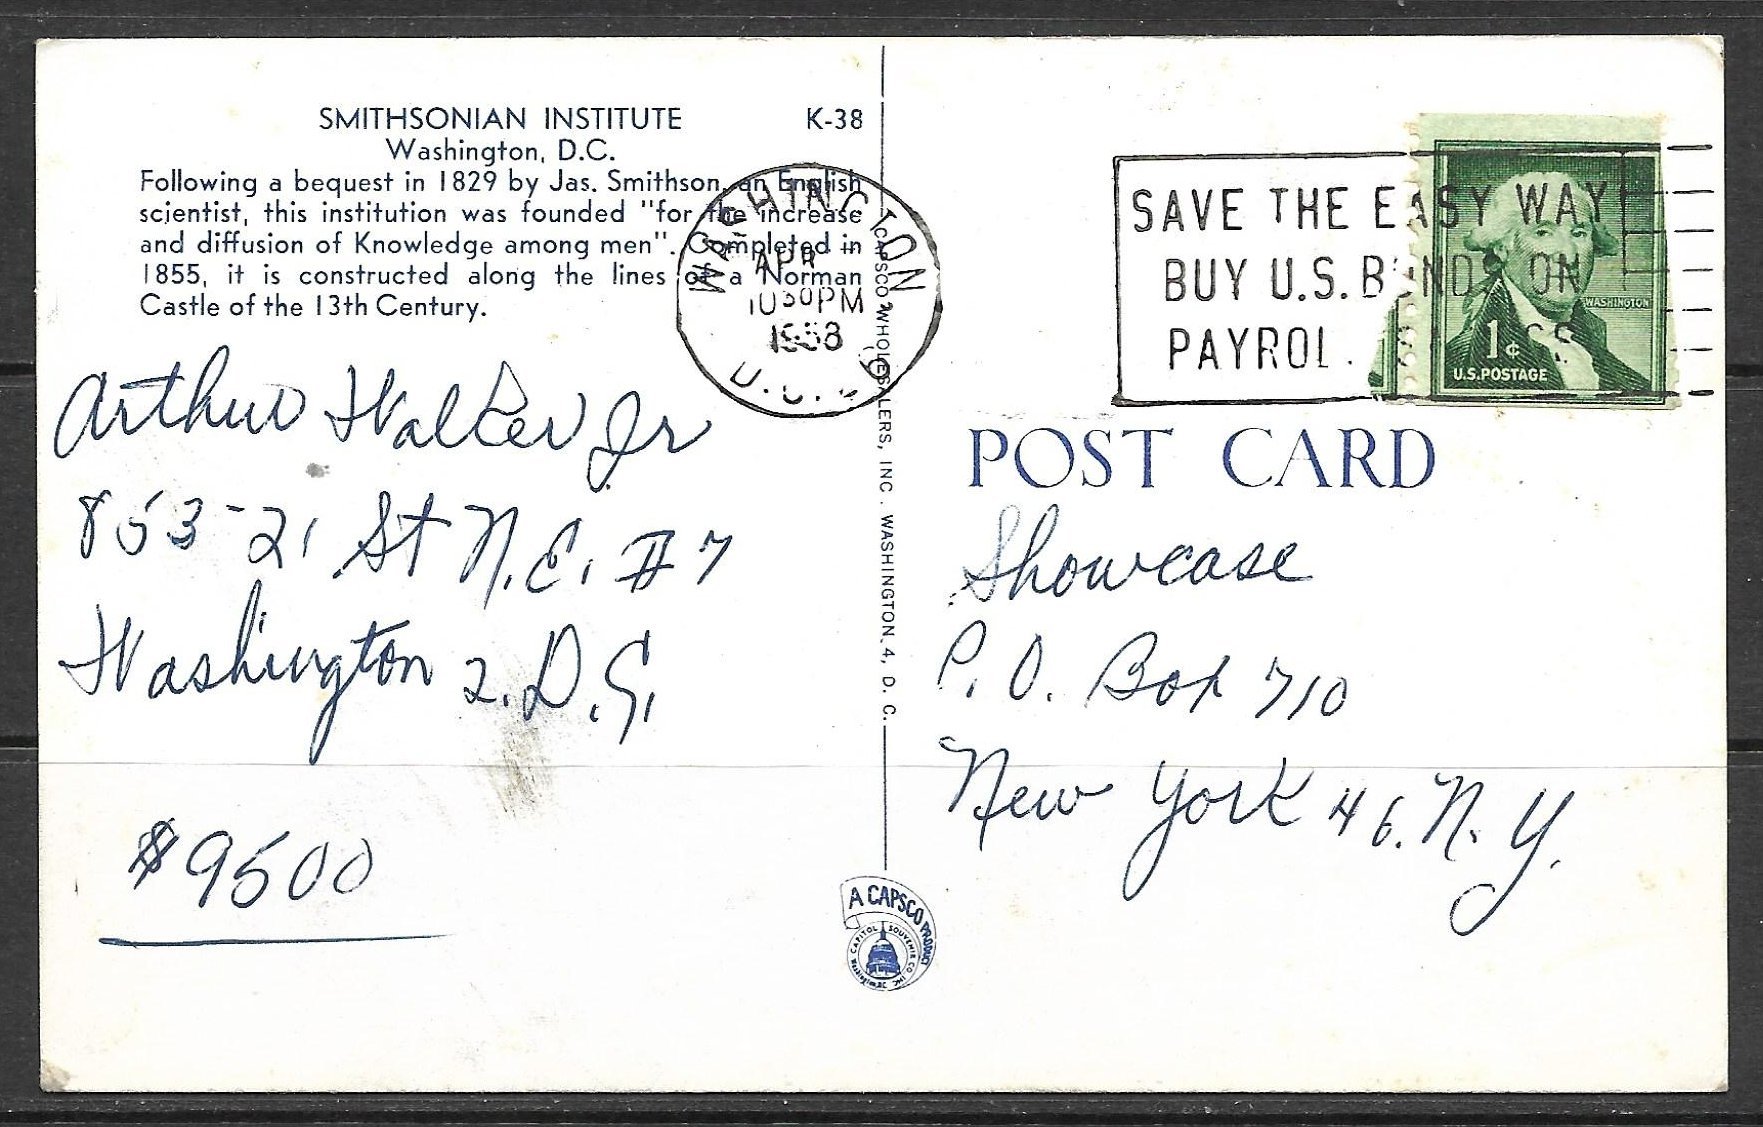 SMITHSONIAN INSTITUTE K-38
Washington, D.C.
Following a bequest in 1829 by Jas. Smithson, an English
scientist, this institution was founded "for the increase
and diffusion of Knowledge among men". Completed in
1855, it is constructed along the lines of a Norman
Castle of the 13th Century.
Arthur Walker Jr
853-21 St N.E. #7
Washington 2. D.C.
$9500
WASHINGTON
APR
1030PM
1958
CAPSCO WHOLESALERS, INC. WASHINGTON 4, D. C.
A CAPSCO PRODUCT
CAPITOL SOUVENIR CO INC. Washington
SAVE THE EASY WAY!
BUY U.S. BONDS ON
PAYROL
WASHINGTON
1¢
U.S. POSTAGE
POST CARD
Showcase
P.O. Box 710
New York 46. N.Y.